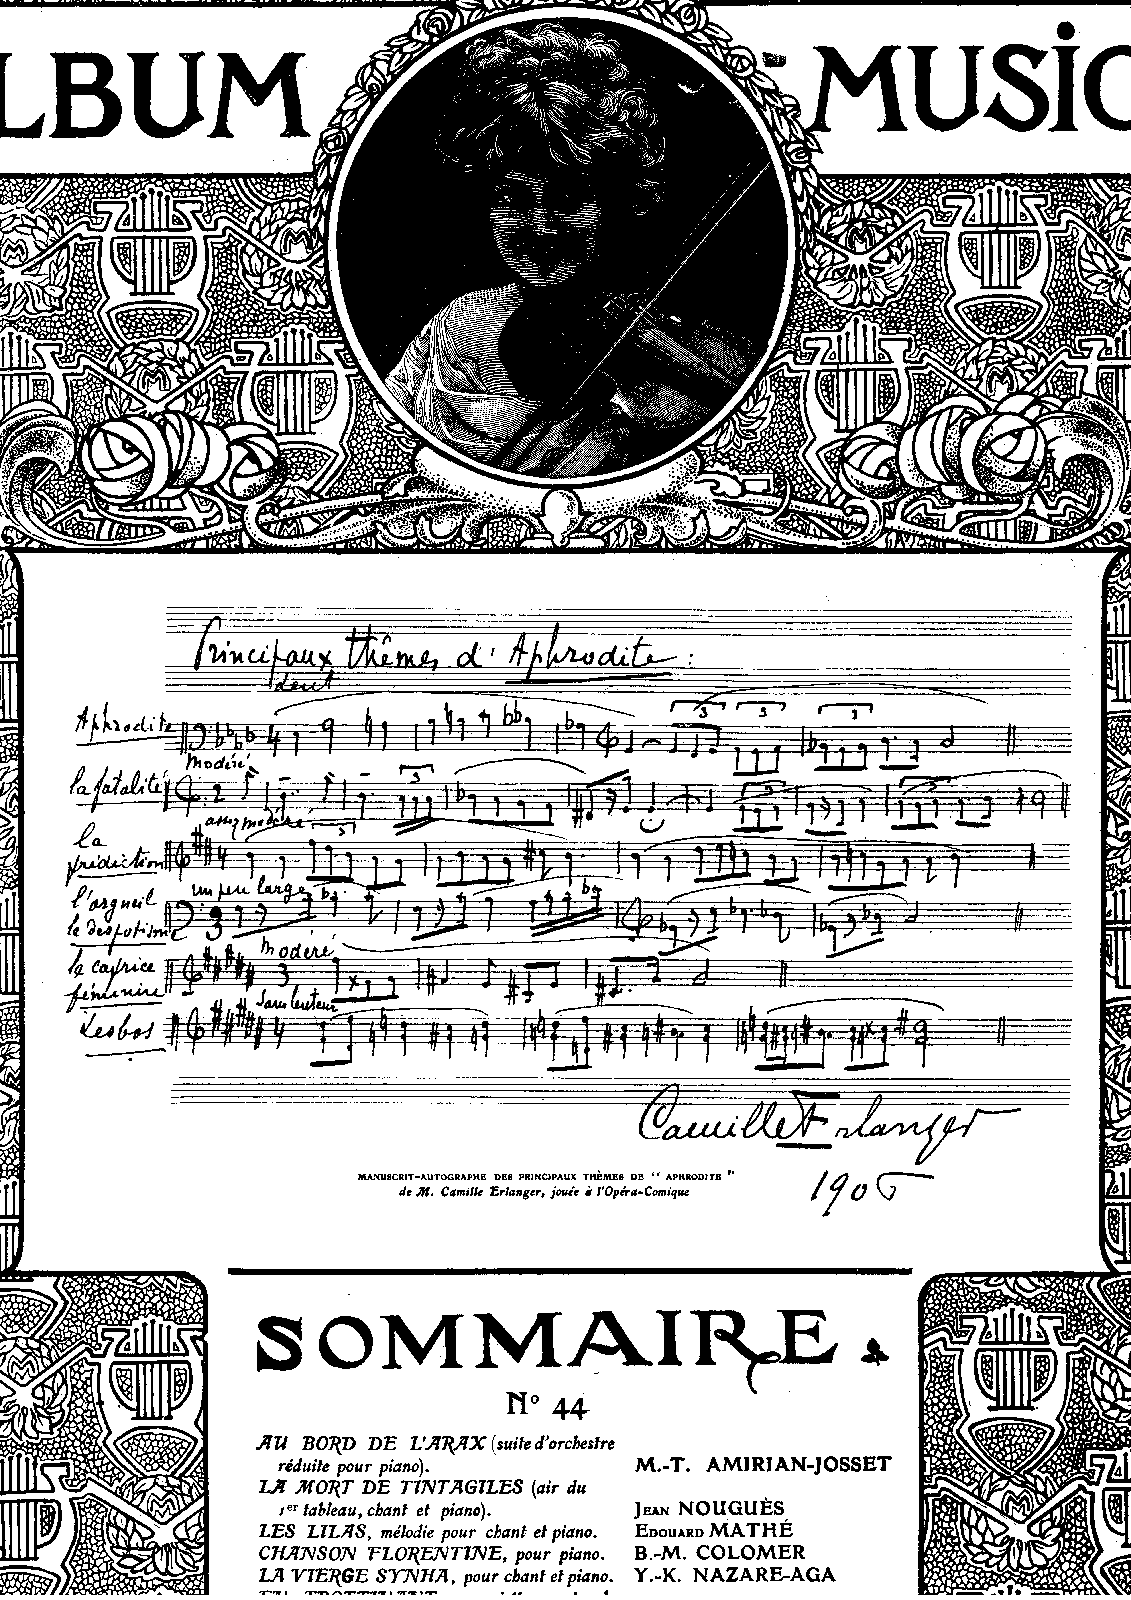 LBUM MUSIC
Principaux thêmes d'Aphrodite :
lent
Aphrodite
Modéré
la fatalité
assez modéré
la
prédiction
un peu large
l'orgueil
le despotisme
Modéré
le caprice
féminin
Sans lenteur
Lesbos
Camille Erlanger
1906
MANUSCRIT-AUTOGRAPHE DES PRINCIPAUX THÈMES DE " APHRODITE "
de M. Camille Erlanger, jouée à l'Opéra-Comique
SOMMAIRE
No 44
AU BORD DE L'ARAX (suite d'orchestre
réduite pour piano). M.-T. AMIRIAN-JOSSET
LA MORT DE TINTAGILES (air du
1er tableau, chant et piano). JEAN NOUGUÈS
LES LILAS, mélodie pour chant et piano. EDOUARD MATHÉ
CHANSON FLORENTINE, pour piano. B.-M. COLOMER
LA VIERGE SYNHA, pour chant et piano. Y.-K. NAZARE-AGA